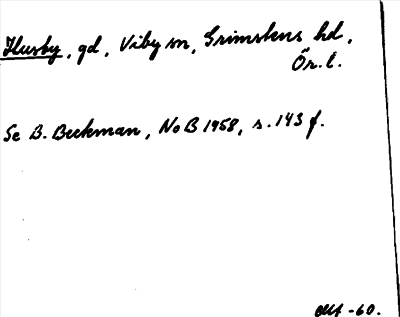 Husby, gd, Viby sn, Grimstens hd,
Ör. l.
Se B. Beckman, NoB 1958, s. 143 f.
-60.